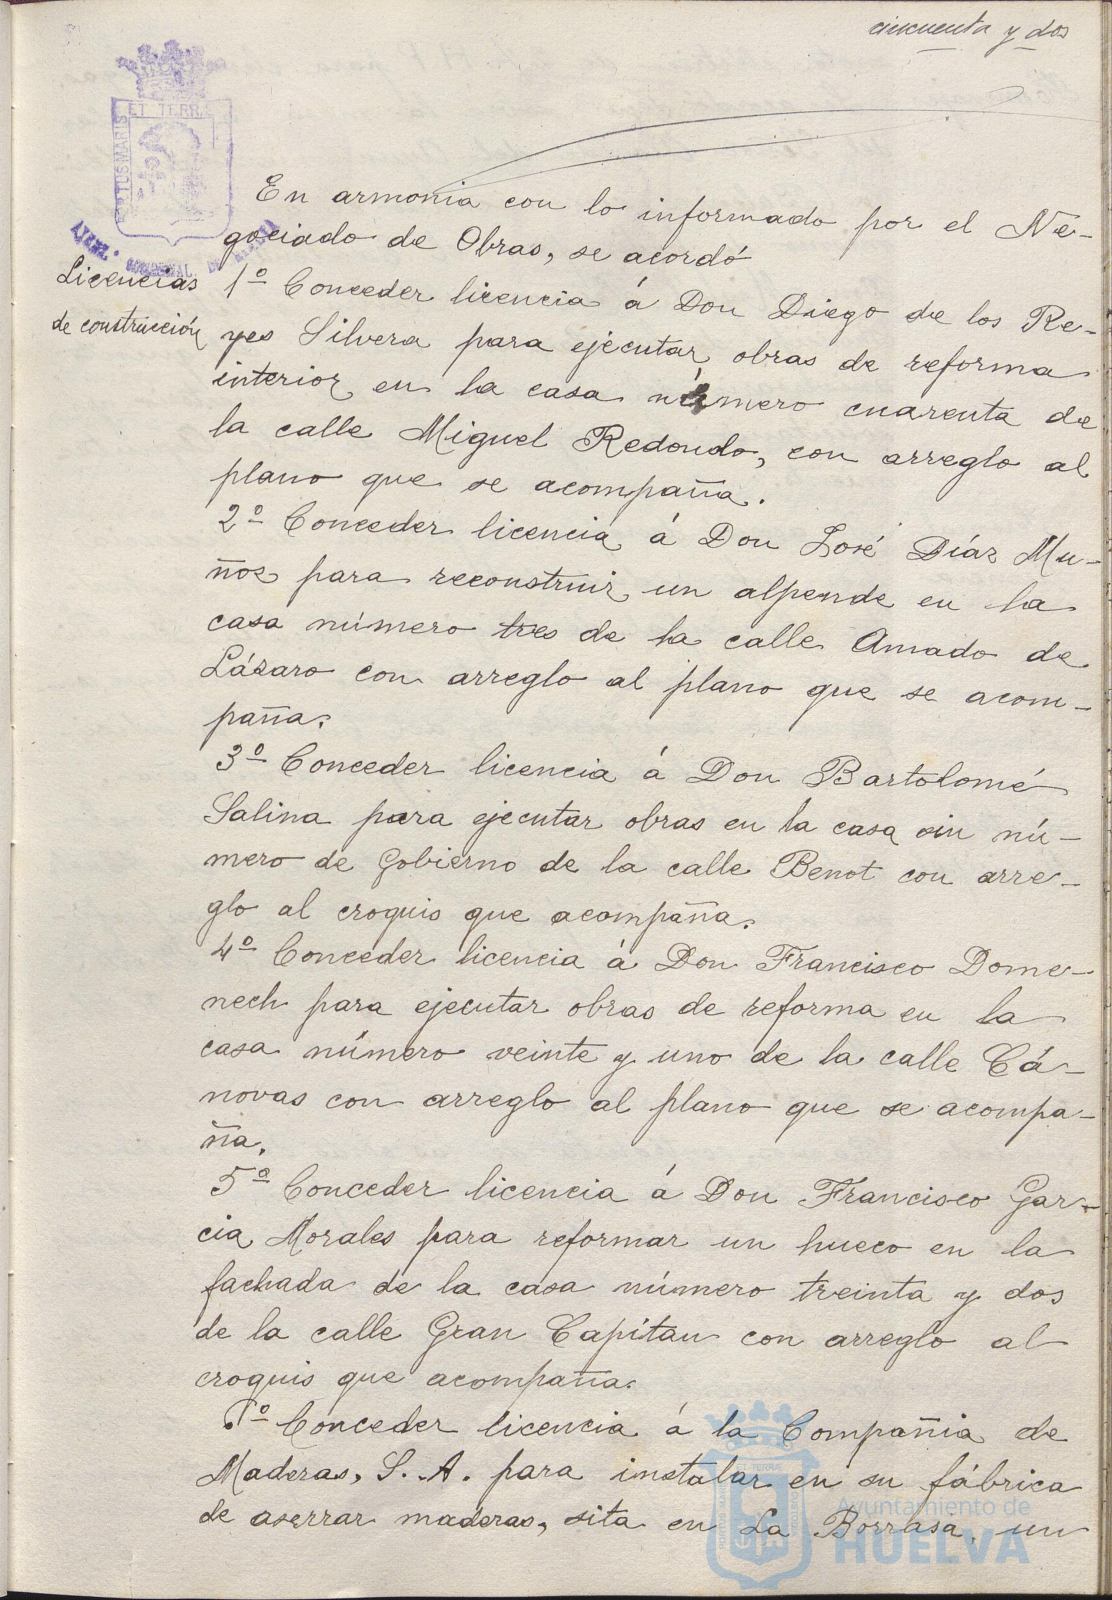 cincuenta y dos
ET TERRA
PORTUS MARIS
En armonia con lo informado por el Ne-
gociado de Obras, se acordó
Licencias
de construcción
1º Conceder licencia á Don Diego de los Re-
yes Silvera para ejecutar obras de reforma
interior en la casa número cuarenta de
la calle Miguel Redondo, con arreglo al
plano que se acompaña.
2º Conceder licencia á Don José Díaz Mu-
ñoz para reconstruir un alpende en la
casa número tres de la calle Amado de
Lázaro con arreglo al plano que se acom-
paña.
3º Conceder licencia á Don Bartolomé
Salina para ejecutar obras en la casa sin nú-
mero de Gobierno de la calle Benot con arre-
glo al croquis que acompaña.
4º Conceder licencia á Don Francisco Dome-
nech para ejecutar obras de reforma en la
casa número veinte y uno de la calle Cá-
novas con arreglo al plano que se acompa-
ña.
5º Conceder licencia á Don Francisco Gar-
cia Morales para reformar un hueco en la
fachada de la casa número treinta y dos
de la calle Gran Capitan con arreglo al
croquis que acompaña.
Conceder licencia á la Compañia de
Maderas, S. A. para instalar en su fábrica
de aserrar maderas, sita en La Borrasa, un
Ayuntamiento de
HUELVA